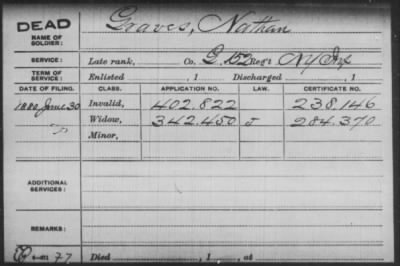 DEAD Graves, Nathan
NAME OF SOLDIER:
SERVICE: Late rank, Co. G, 152 Reg't NY Inf
TERM OF SERVICE: Enlisted , 1 Discharged , 1
DATE OF FILING. CLASS. APPLICATION NO. LAW. CERTIFICATE NO.
1880, June 30 Invalid, 402.822 238.146
Widow, 342.450 J 284.370
Minor,
ADDITIONAL SERVICES:
REMARKS:
77 Died , 1 , at